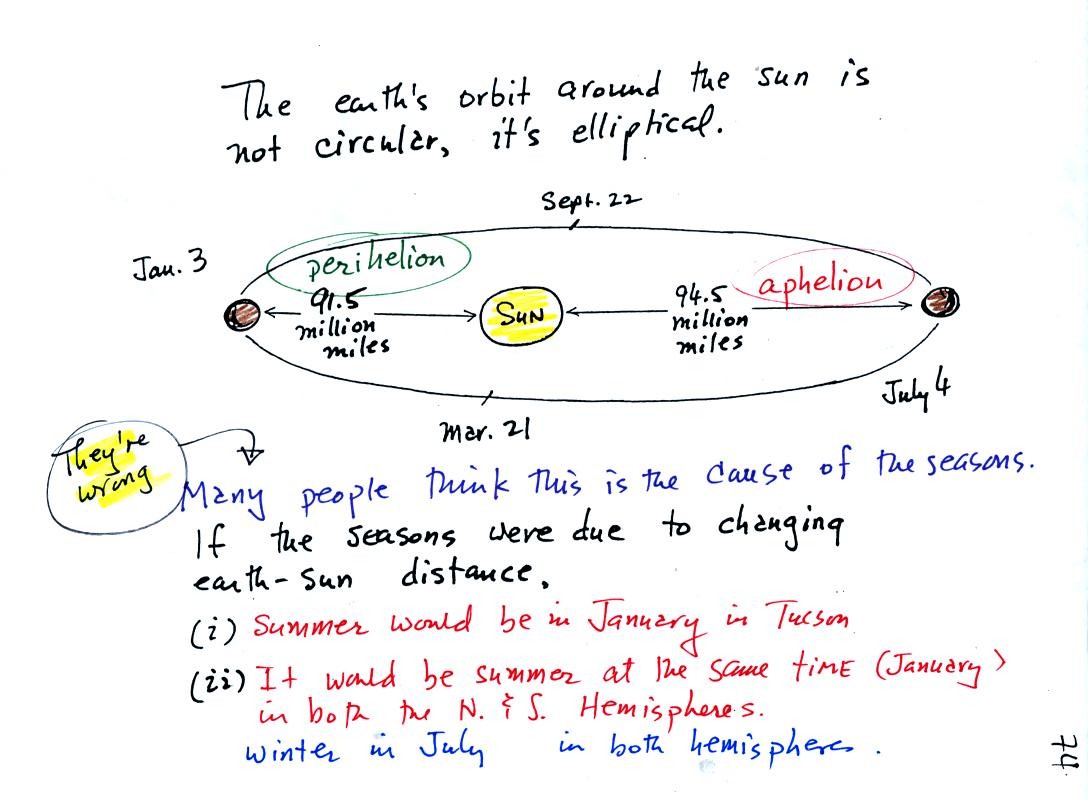 The earth's orbit around the sun is
not circular, it's elliptical.
Sept. 22
Jan. 3
perihelion
aphelion
91.5
million
miles
SUN
94.5
million
miles
July 4
Mar. 21
They're
wrong
Many people think this is the cause of the seasons.
If the seasons were due to changing
earth-sun distance,
(i) Summer would be in January in Tucson
(ii) It would be summer at the same TIME (January)
in both the N. & S. Hemispheres.
winter in July in both hemispheres.
74